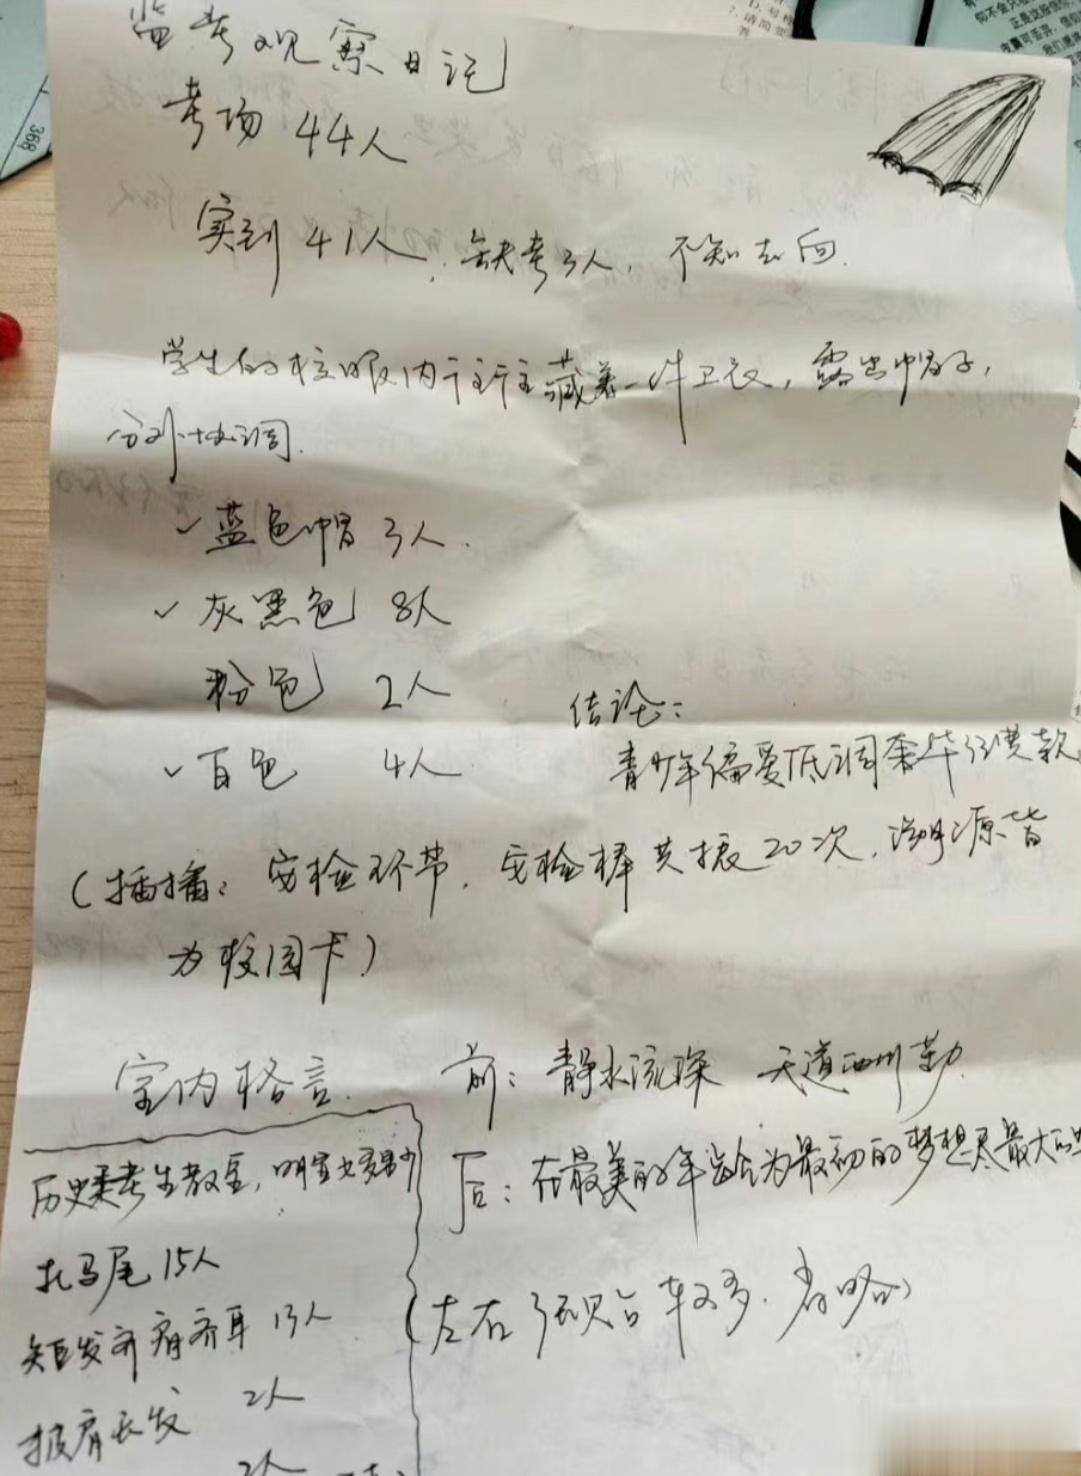 监考观察日记
考场 44人
实到41人，缺考3人，不知去向.
学生的校服内往往藏着一件卫衣，露出帽子，
分外协调.
✓蓝色帽 3人.
✓灰黑色 8人
粉色 2人
✓百色 4人
结论：
青少年偏爱低调奢华经典款.
(插播：安检环节，安检棒共振20次，溯源皆
为校园卡)
室内格言.
前：静水流深 天道酬勤.
后：在最美的年龄为最初的梦想尽最大的
(左右 较多. 省略)
历史类考生教室，明显女多男少
扎马尾15人
短发齐肩齐耳 13人
披肩长发 2人
2人
368